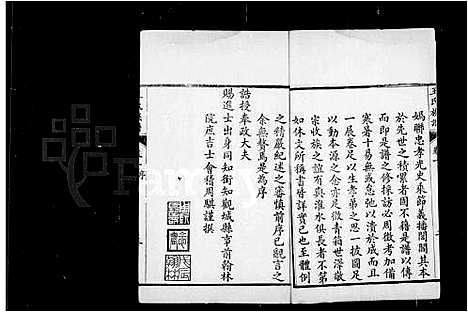 王氏族譜
媯聯忠孝光史乘節義播閭閻其本
於先世之積累者固不籍是譜以傳
而是譜之修採訪必周徵考加備
寒暑十易無或怠弛以潰於成而且
一展卷足以生孝弟之思一披圖足
以動本源之念亦足徵青箱世澤敬
宗收族之誼有與淮水俱長者不第
如休文所稱書皆詳實已也至體例
之精嚴紀述之審慎前序已觀言之
余無贅焉是為序
誥授奉政大夫
賜進士出身同知銜知觀城縣事前翰林
院庶吉士會稽周騏謹撰
序